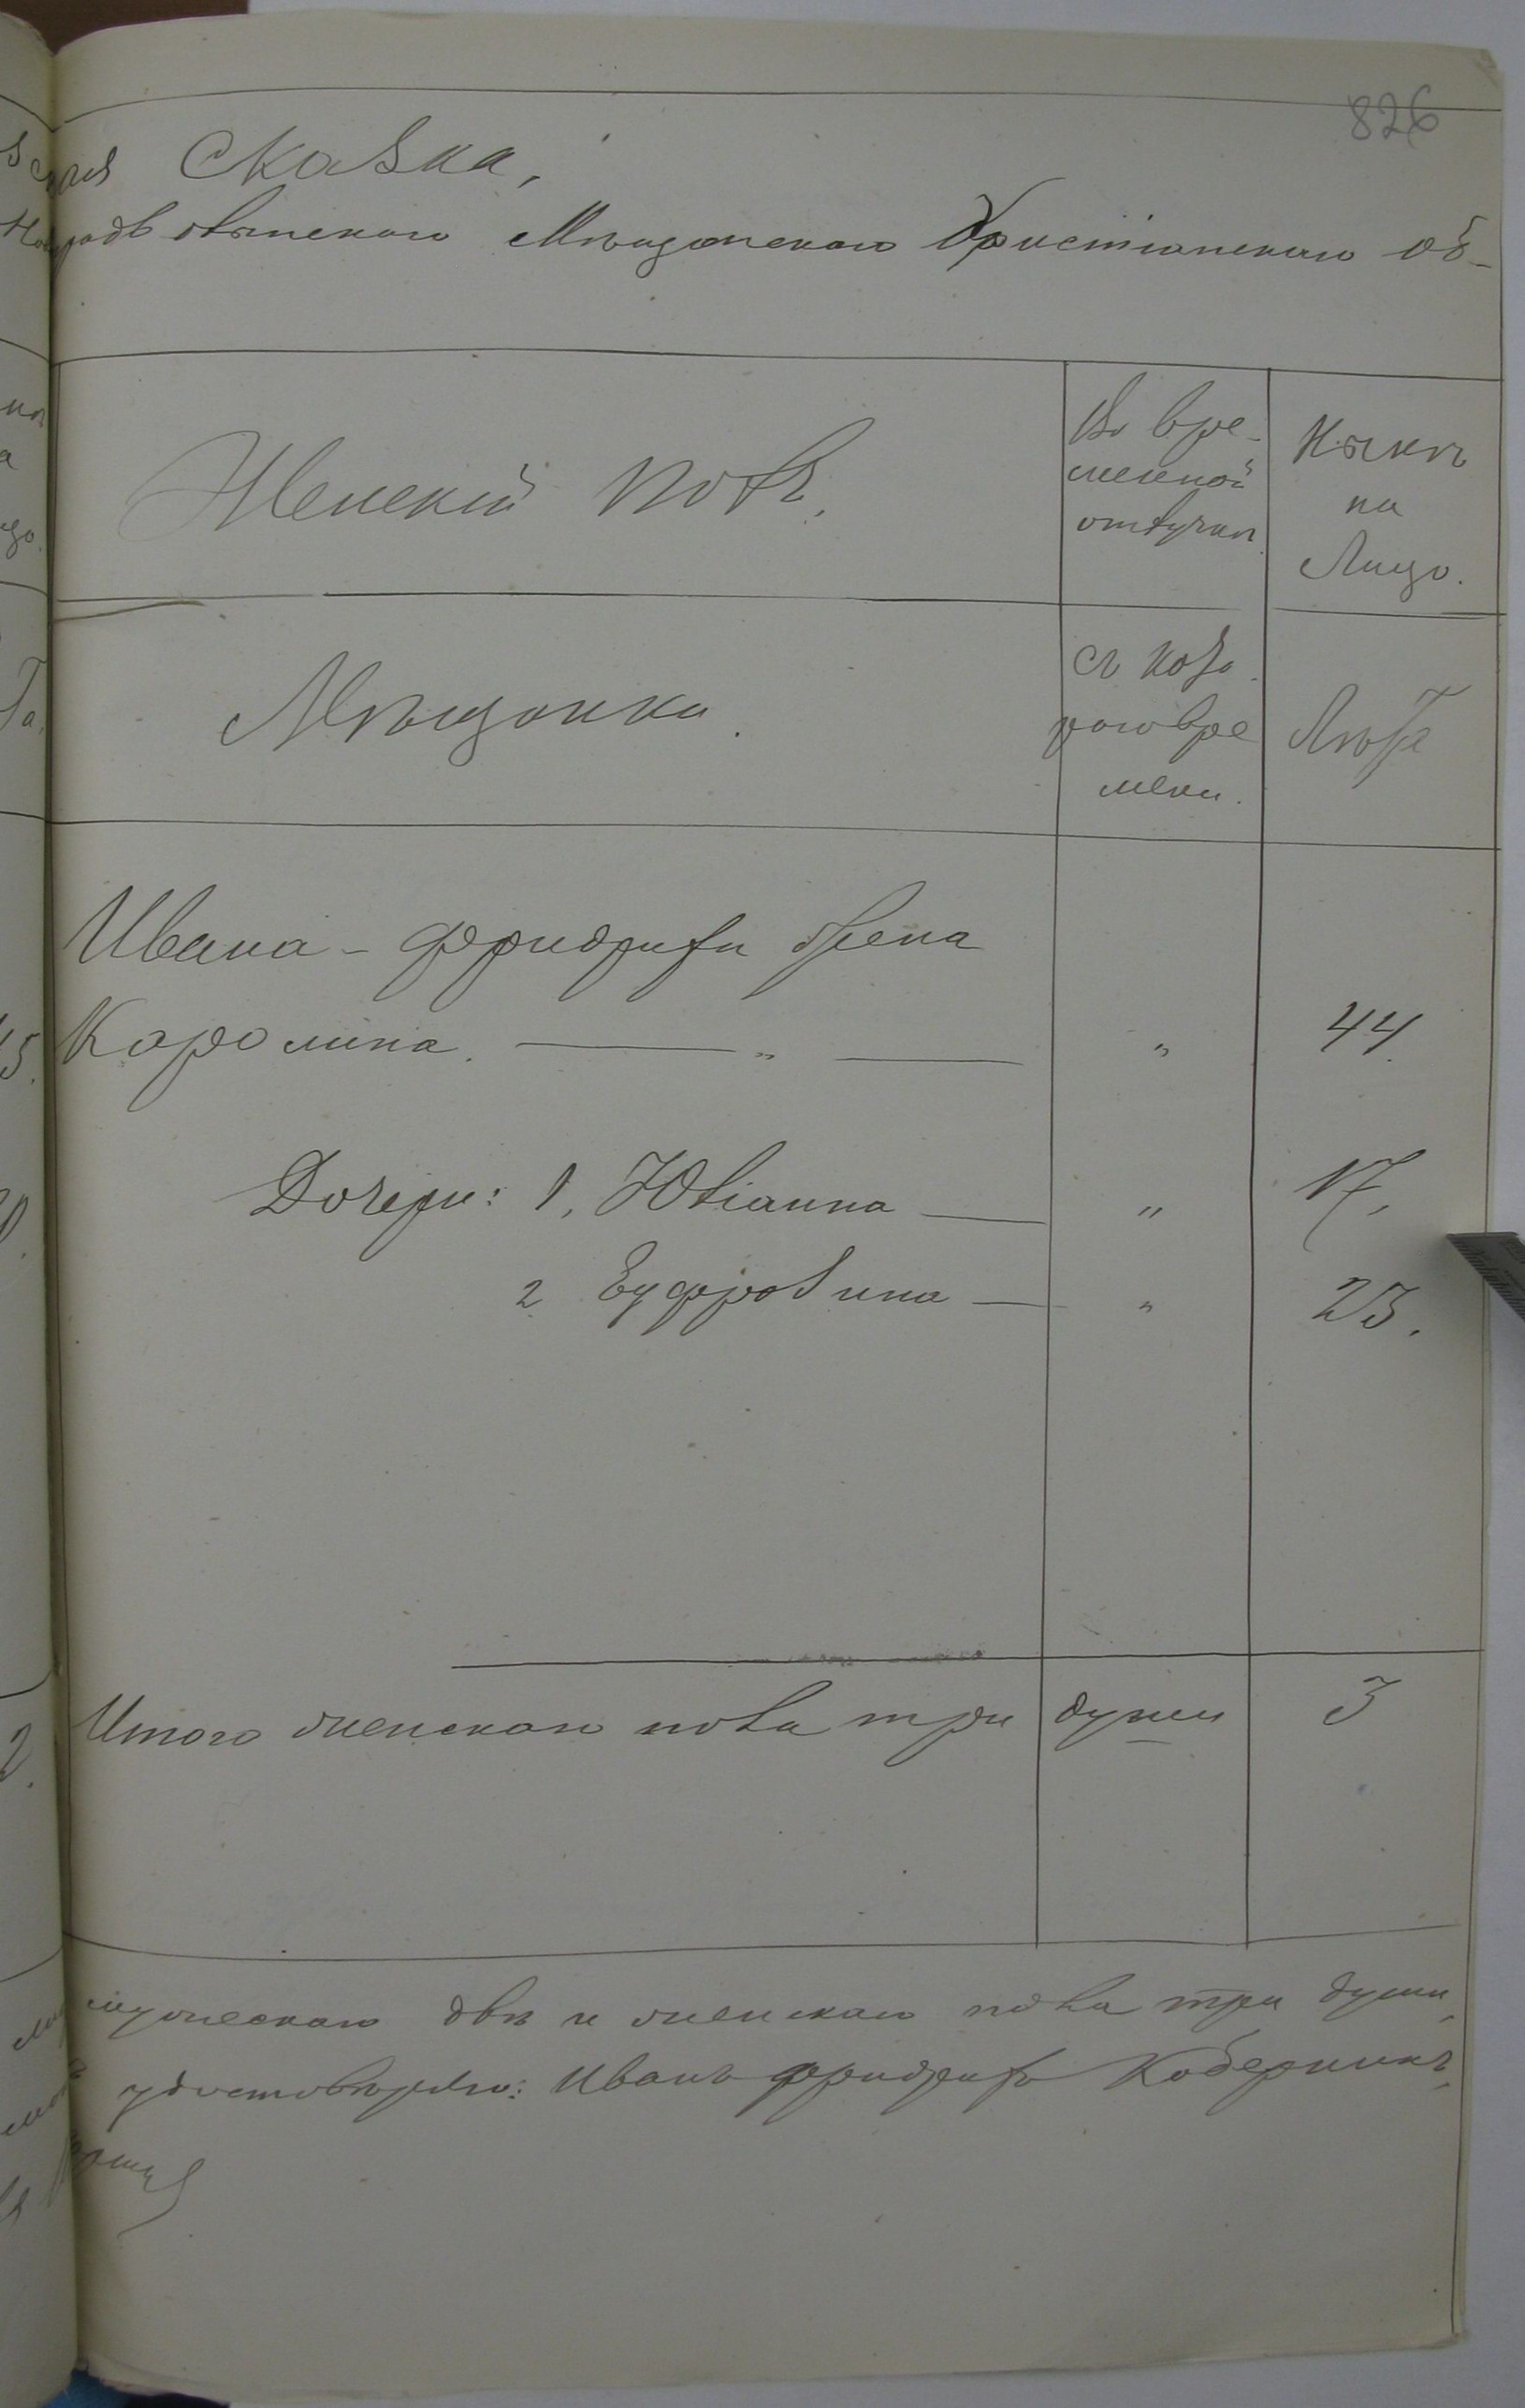 826
Сказка,
Мѣщанскаго Христіанскаго об-
Женскій полъ.
Во вре-
менной
отлучкѣ.
Нынѣ
на
Лицо.
Мѣщанки.
Съ кото
раго вре
мени.
Лѣта
Ивана-Фридриха жена
Каролина. — „ — „ 44.
Дочери: 1, Юліанна — „ 17,
2 Еуфрозина — „ 23.
Итого женскаго пола три души 3
мужескаго двѣ и женскаго пола три души,
удостовѣряю: Иванъ Фридрихъ